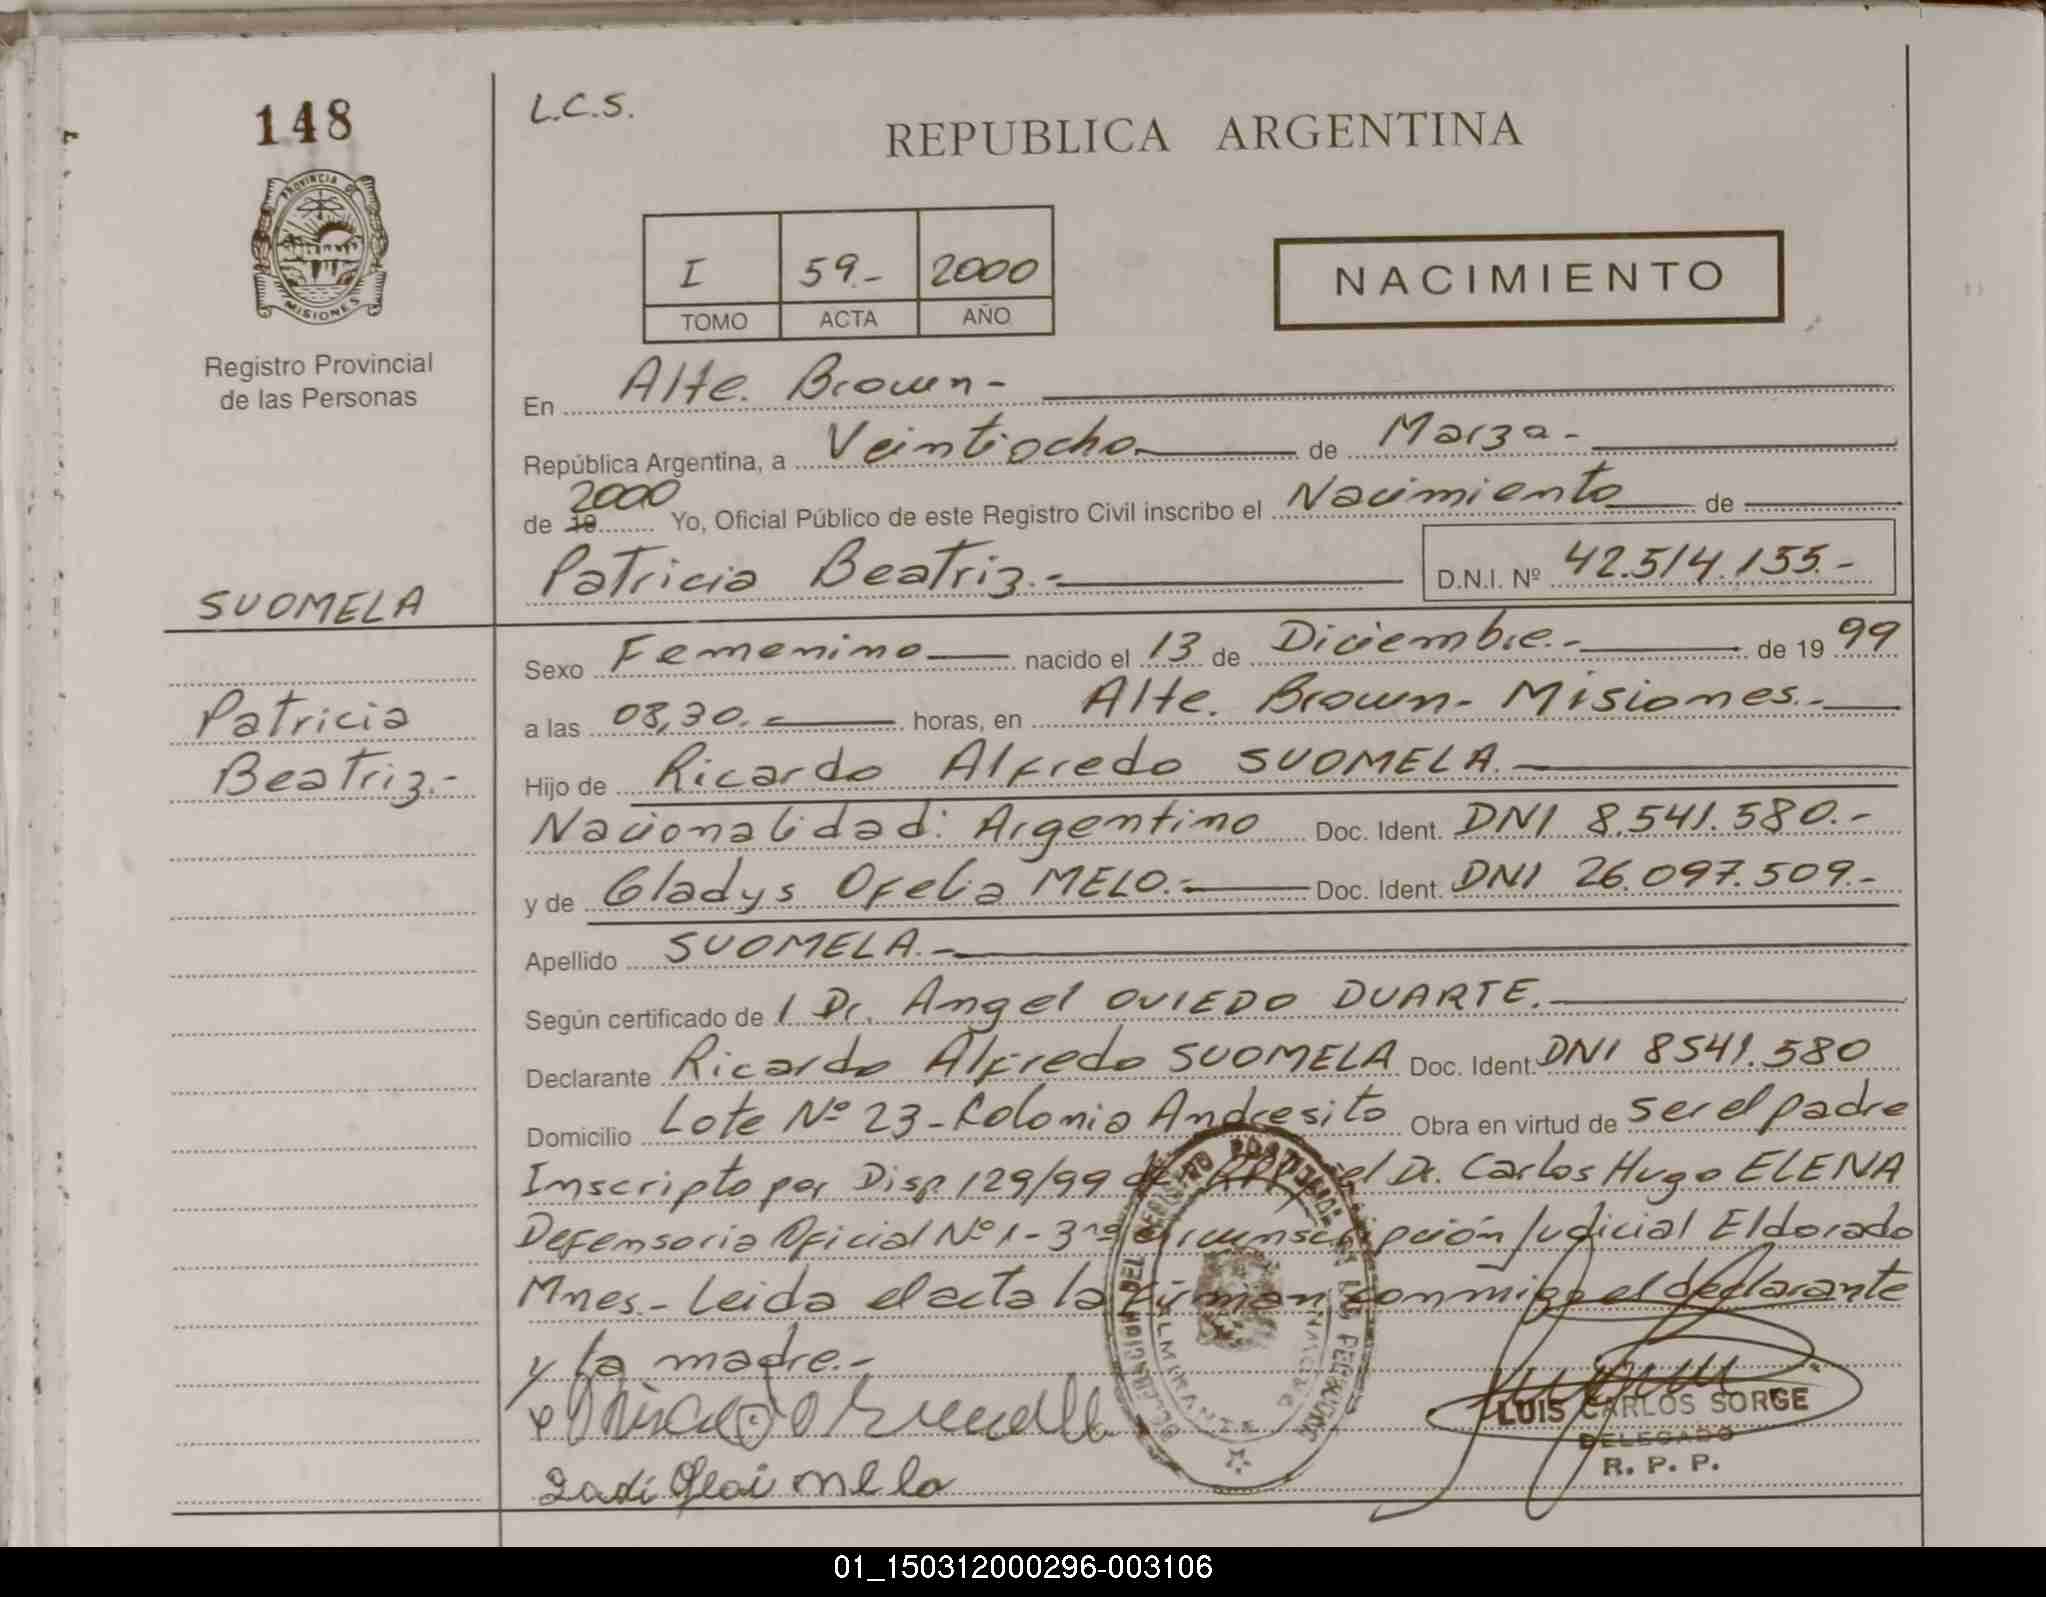 148
L.C.S.
REPUBLICA ARGENTINA
PROVINCIA DE
MISIONES
Registro Provincial
de las Personas
I 59.- 2000
TOMO ACTA AÑO
NACIMIENTO
En Alte. Brown-
República Argentina, a Veintiocho de Marzo-
de 19 2000 Yo, Oficial Público de este Registro Civil inscribo el Nacimiento de
Patricia Beatriz.- D.N.I. Nº 42.514.155.-
SUOMELA
Patricia
Beatriz.-
Sexo Femenino nacido el 13 de Diciembre.- de 1999
a las 08,30.- horas, en Alte. Brown- Misiones.-
Hijo de Ricardo Alfredo SUOMELA.
Nacionalidad: Argentino Doc. Ident. DNI 8.541.580.-
y de Gladys Ofelia MELO.- Doc. Ident. DNI 26.097.509.-
Apellido SUOMELA.-
Según certificado de l Dr. Angel OVIEDO DUARTE.
Declarante Ricardo Alfredo SUOMELA Doc. Ident. DNI 8541.580
Domicilio Lote Nº 23-Colonia Andresito Obra en virtud de ser el padre
Inscripto por Disp 129/99 del Dr. Carlos Hugo ELENA
Defensoria Oficial Nº 1- 3ra circunscripción Judicial Eldorado
Mnes.- Leida el acta la firman conmigo el declarante
y la madre.-
LUIS CARLOS SORGE
DELEGADO
R. P. P.
01_150312000296-003106